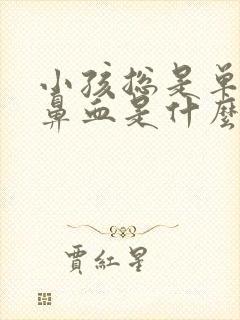 小孩总是单
鼻血是什麼
賈紅星